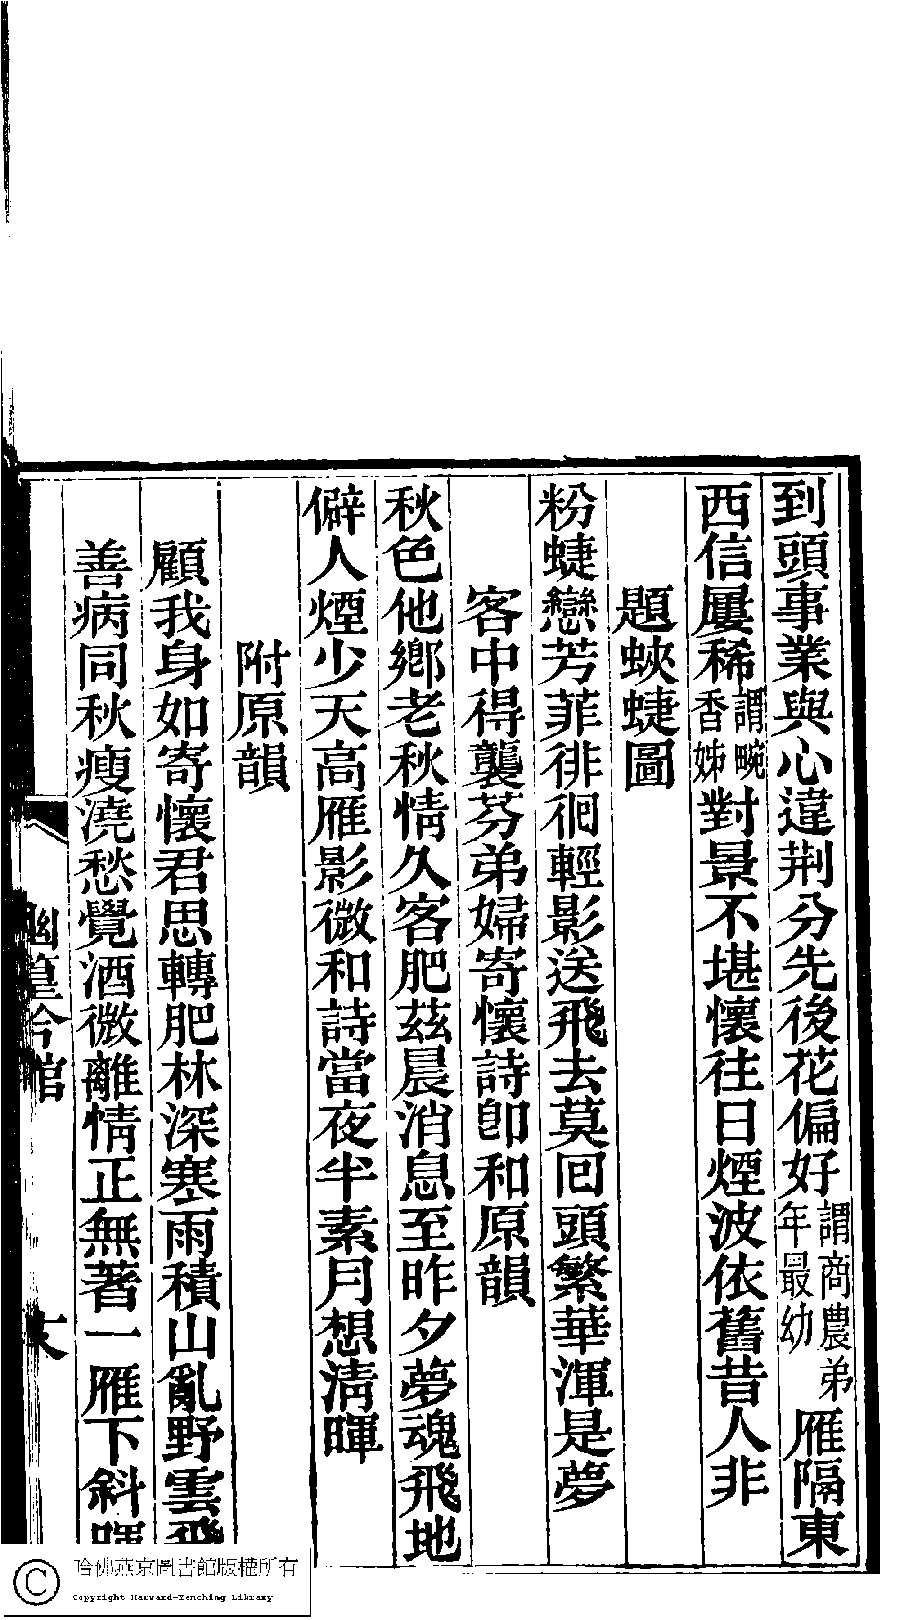 到頭事業與心違荆分先後花偏好謂商農弟年最幼雁隔東
西信屢稀謂畹香姊對景不堪懷往日煙波依舊昔人非
題蛺蜨圖
粉蜨戀芳菲徘徊輕影送飛去莫回頭繁華渾是夢
客中得襲芬弟婦寄懷詩卽和原韻
秋色他鄉老秋情久客肥茲晨消息至昨夕夢魂飛地
僻人煙少天高雁影微和詩當夜半素月想淸暉
附原韻
顧我身如寄懷君思轉肥林深寒雨積山亂野雲飛
善病同秋瘦澆愁覺酒微離情正無著一雁下斜暉
幽篁吟館
哈佛燕京圖書館版權所有
Copyright Harvard-Yenching Library